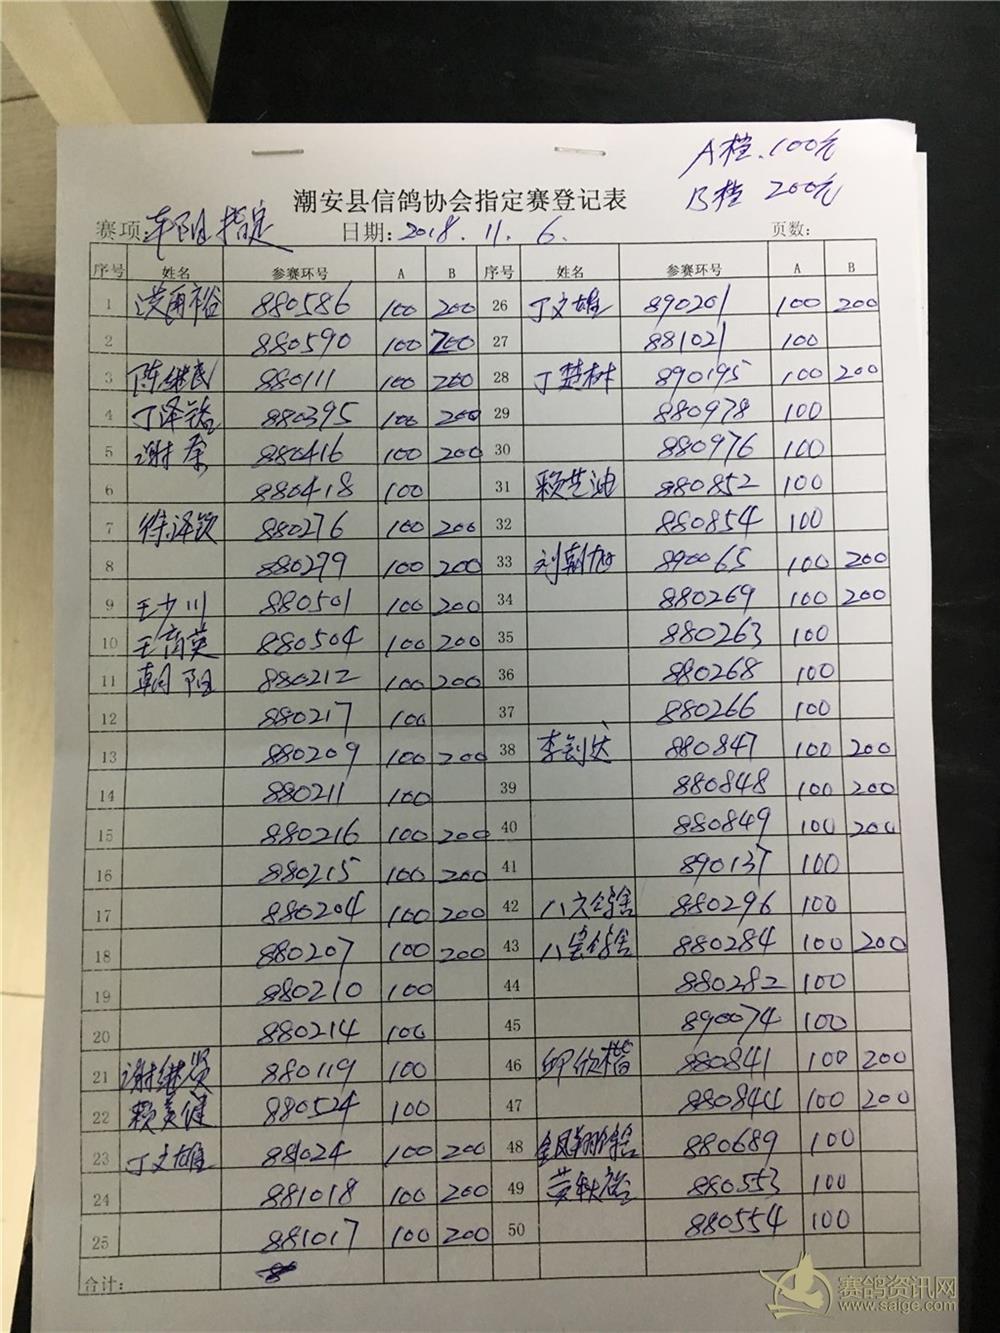 A档.100元
B档 200元
潮安县信鸽协会指定赛登记表
赛项: 指定 日期: 2018.11.6. 页数:
序号 姓名 参赛环号 A B 序号 姓名 参赛环号 A B
1 880586 100 200 26 丁文雄 890201 100 200
2 880590 100 200 27 881021 100
3 陈继民 880111 100 200 28 丁楚树 890195 100 200
4 丁泽 880395 100 200 29 880978 100
5 谢 880416 100 200 30 880976 100
6 880418 100 31 赖芝油 880852 100
7 徐泽钦 880276 100 200 32 880854 100
8 880279 100 200 33 刘朝旭 890065 100 200
9 王少川 880501 100 200 34 880269 100 200
10 英 880504 100 200 35 880263 100
11 朝阳 880212 100 200 36 880268 100
12 880217 100 37 880266 100
13 880209 100 200 38 李剑达 880847 100 200
14 880211 100 39 880848 100 200
15 880216 100 200 40 880849 100 200
16 880215 100 200 41 890137 100
17 880204 100 200 42 八六鸽舍 880296 100
18 880207 100 200 43 八宝鸽舍 880284 100 200
19 880210 100 44 880282 100
20 880214 100 45 890074 100
21 谢继贤 880119 100 46 欣楷 880841 100 200
22 赖 健 880524 100 47 880844 100 200
23 丁文雄 881024 100 200 48 金凤翔鸽舍 880689 100
24 881018 100 200 49 880553 100
25 881017 100 200 50 880554 100
合计:
赛鸽资讯网
www.saige.com